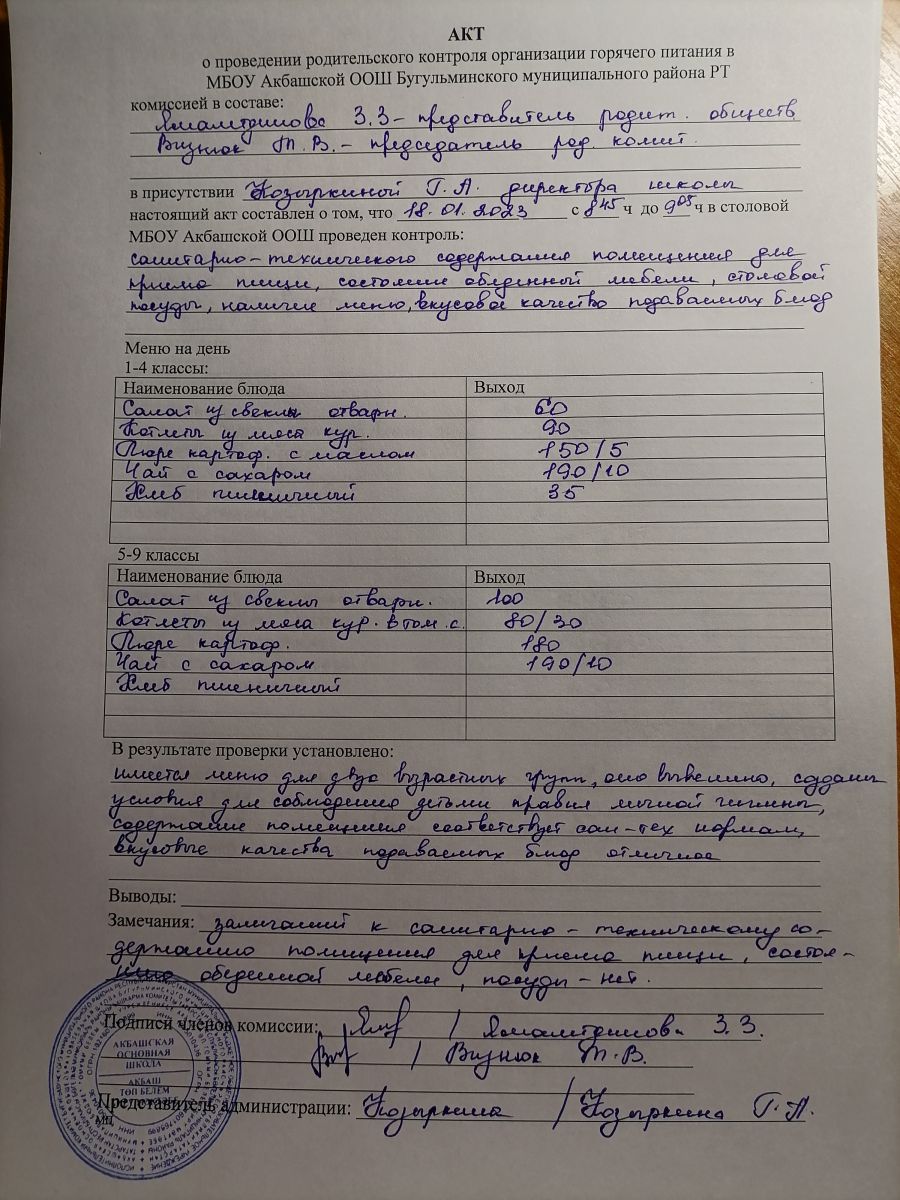 АКТ
о проведении родительского контроля организации горячего питания в
МБОУ Акбашской ООШ Бугульминского муниципального района РТ
комиссией в составе:
Ямалтдинова З.З – представитель родит. обществ.
Визнюк Т.В. – председатель род. комит.
в присутствии Козыркиной Г.А. директора школы
настоящий акт составлен о том, что 18.01.2023 с 8 45 ч до 9 05 ч в столовой
МБОУ Акбашской ООШ проведен контроль:
санитарно-технического содержания помещения для
приема пищи, состояние обеденной мебели, столовой
посуды, наличие меню, вкусовое качество подаваемых блюд
Меню на день
1-4 классы:
Наименование блюда Выход
Салат из свеклы отварн. 60
Котлеты из мяса кур. 90
Пюре картоф. с маслом 150/5
Чай с сахаром 190/10
Хлеб пшеничный 35
5-9 классы
Наименование блюда Выход
Салат из свеклы отварн. 100
Котлеты из мяса кур. в том.с. 80/30
Пюре картоф. 180
Чай с сахаром 190/10
Хлеб пшеничный
В результате проверки установлено:
имеется меню для двух возрастных групп, оно вывешено, созданы
условия для соблюдения детьми правил личной гигиены,
содержание помещения соответствует сан-тех нормам,
вкусовые качества подаваемых блюд отличное
Выводы:
Замечания: замечаний к санитарно-техническому со-
держанию помещения для приема пищи, состоя-
нию обеденной мебели, посуды – нет.
Подписи членов комиссии: / Ямалтдинова З.З.
/ Визнюк Т.В.
Представитель администрации: Козыркина / Козыркина Г.А.
МП
АКБАШСКАЯ
ОСНОВНАЯ
ШКОЛА
АКБАШ
ТӨП БЕЛЕМ